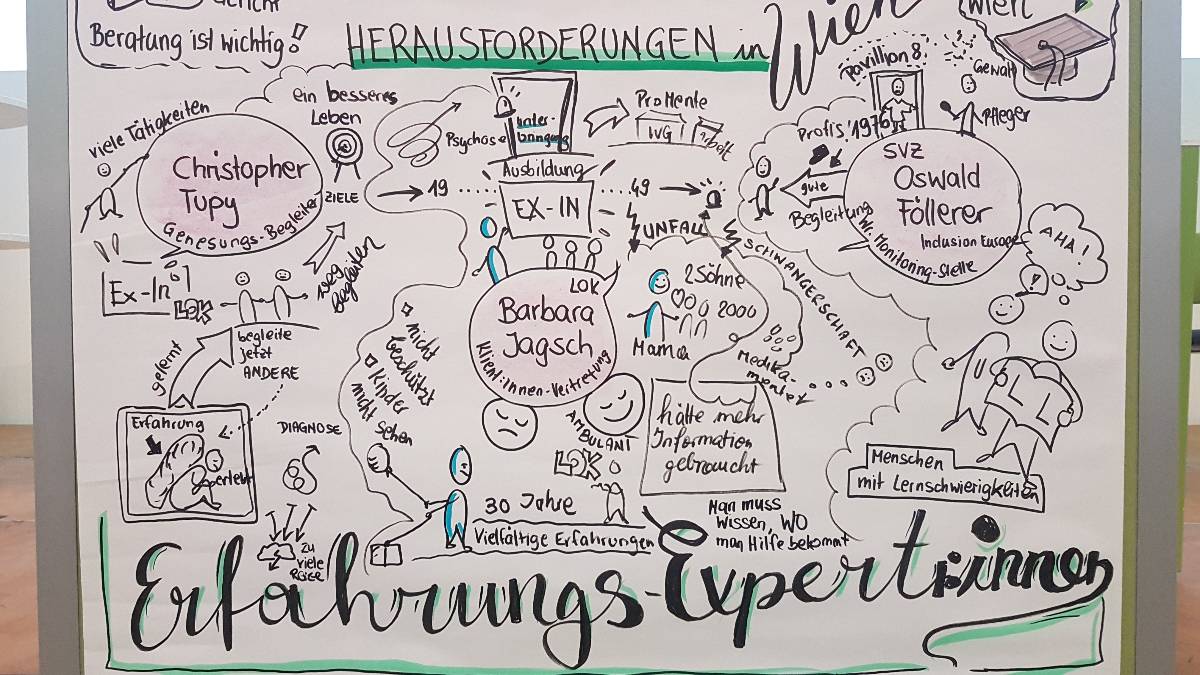 Beratung ist wichtig!
HERAUSFORDERUNGEN in Wien
Wien
viele Tätigkeiten
ein besseres
Leben
ZIELE
Christopher
Tupy
Genesungs-Begleiter
Ex-In
LOK
weg
begleiten
begleite
jetzt
ANDERE
gelernt
Erfahrung
DIAGNOSE
zu
viele
Psychose
Unter-
bringung
ProMente
WG
Arbeit
Ausbildung
19
49
EX-IN
UNFALL
SCHWANGERSCHAFT
LOK
Barbara
Jagsch
Klient:innen-Vertretung
2 Söhne
2000
Mama
Medika-
mente
nicht
beschützt
Kinder
nicht sehen
AMBULANT
LOK
hätte mehr
Information
gebraucht
30 Jahre
Vielfältige Erfahrungen
Man muss
wissen, WO
man Hilfe bekommt
Pavillion 8
Gewalt
Pfleger
Profis '1976
gute
Begleitung
SVZ
Oswald
Föllerer
Inclusion Europe
Wr. Monitoring-Stelle
AHA!
Menschen
mit Lernschwierigkeiten
Erfahrungs-Expert:innen